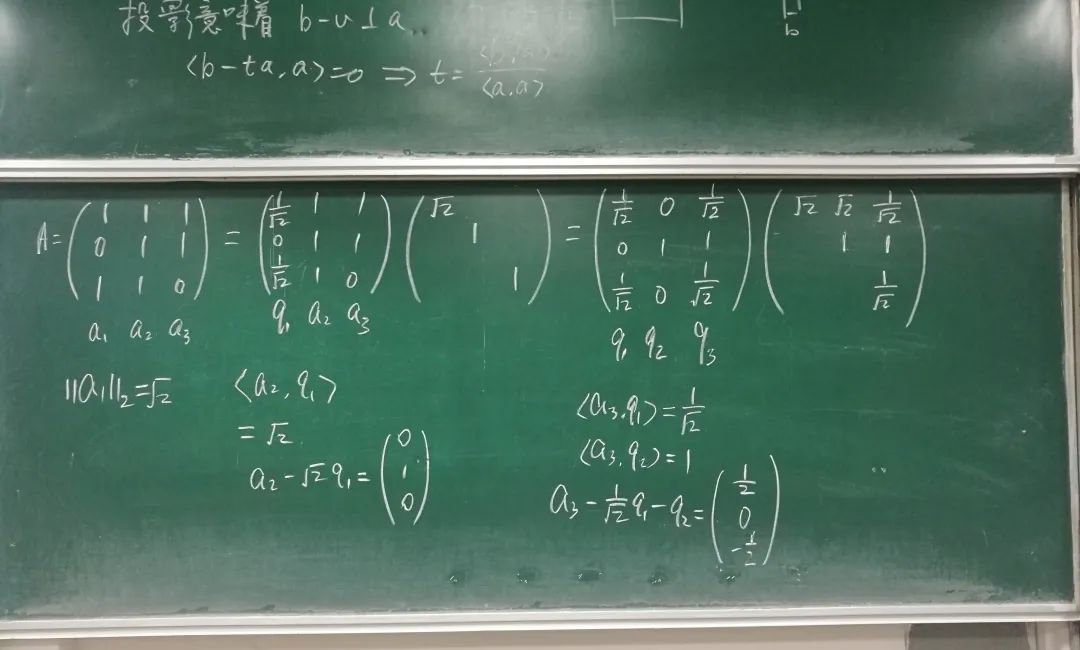 投影意味着 b-u⊥a
⟨b-ta,a⟩=0 ⇒ t= ⟨b,a⟩/⟨a,a⟩
b
A= (1 1 1; 0 1 1; 1 1 0) = (1/√2 1 1; 0 1 1; 1/√2 1 0) (√2; 1; 1) = (1/√2 0 1/√2; 0 1 1; 1/√2 0 1/√2) (√2 √2 1/√2; 1 1; 1/√2)
a₁ a₂ a₃ q₁ a₂ a₃ q₁ q₂ q₃
||a₁||₂=√2 ⟨a₂,q₁⟩
=√2
a₂-√2q₁= (0; 1; 0)
⟨a₃,q₁⟩= 1/√2
⟨a₃,q₂⟩=1
a₃- 1/√2 q₁-q₂= (1/2; 0; -1/2)